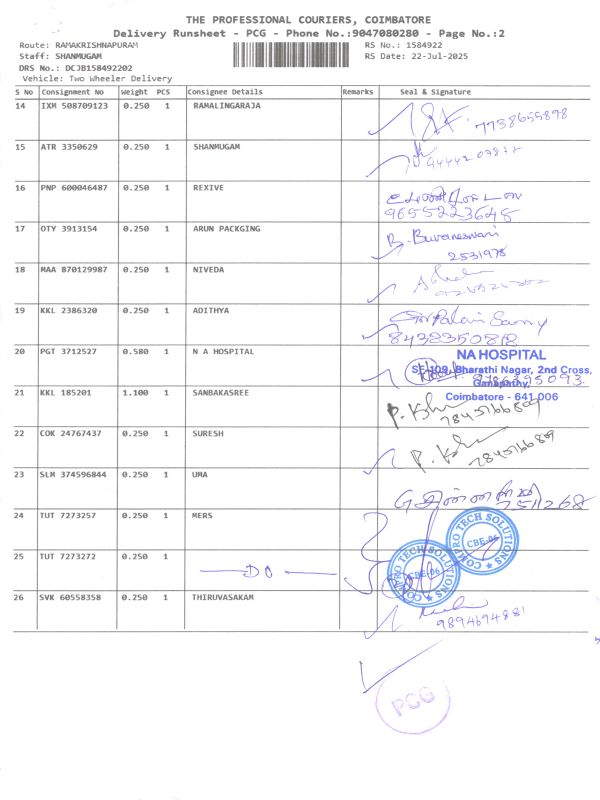 THE PROFESSIONAL COURIERS, COIMBATORE
Delivery Runsheet - PCG - Phone No.:9047080280 - Page No.:2
Route: RAMAKRISHNAPURAM RS No.: 1584922
Staff: SHANMUGAM RS Date: 22-Jul-2025
DRS No.: DCJB158492202
Vehicle: Two Wheeler Delivery
S No Consignment No Weight PCS Consignee Details Remarks Seal & Signature
14 IXM 508709123 0.250 1 RAMALINGARAJA
7738655898
15 ATR 3350629 0.250 1 SHANMUGAM
16 PNP 600046487 0.250 1 REXIVE
9655223648
17 OTY 3913154 0.250 1 ARUN PACKGING
B. Buvaneswari
2531978
18 MAA 870129987 0.250 1 NIVEDA
19 KKL 2386320 0.250 1 ADITHYA
8438350818
20 PGT 3712527 0.580 1 N A HOSPITAL
NA HOSPITAL
SF-109, Bharathi Nagar, 2nd Cross,
Ganapathy,
Coimbatore - 641 006
21 KKL 185201 1.100 1 SANBAKASREE
22 COK 24767437 0.250 1 SURESH
23 SLM 374596844 0.250 1 UMA
24 TUT 7273257 0.250 1 MERS
COMPRO TECH SOLUTIONS
CBE-06
25 TUT 7273272 0.250 1
DO
COMPRO TECH SOLUTIONS
CBE-06
26 SVK 60558358 0.250 1 THIRUVASAKAM
9894694881
PCG